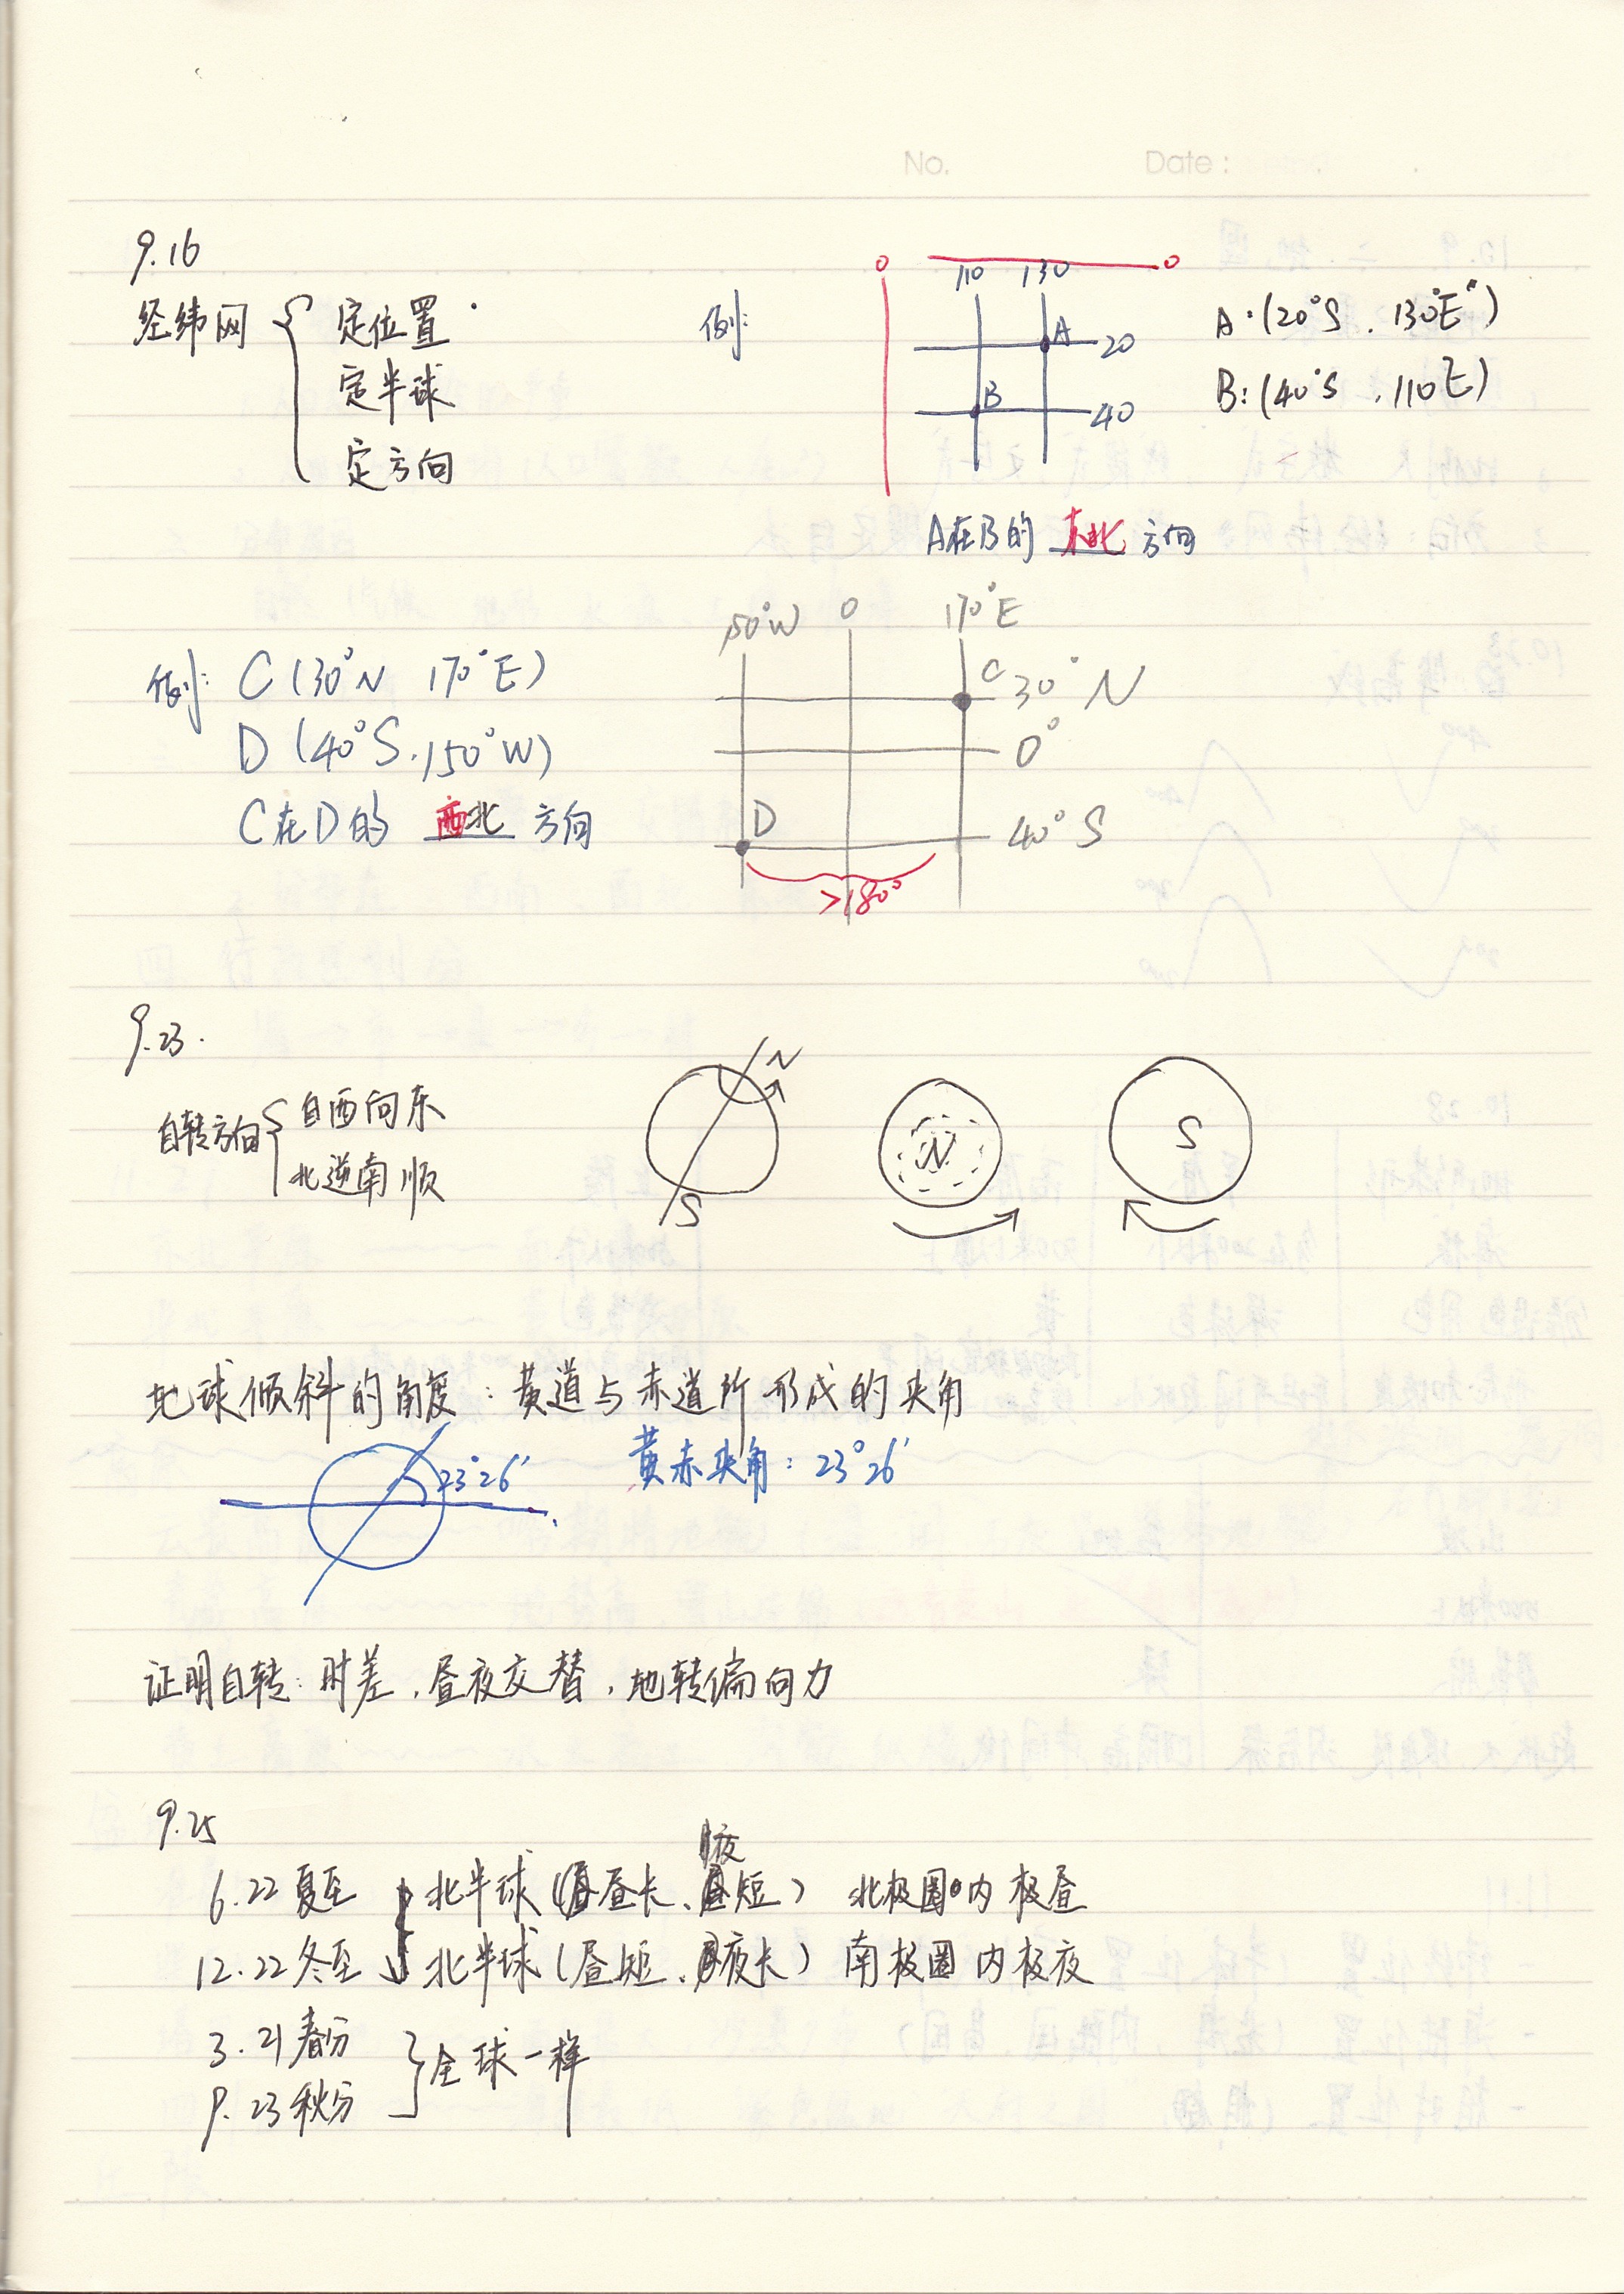 No. Date:
9.16
经纬网 定位置
定半球
定方向
例:
0 110 130 0
A 20
B 40
A:(20°S. 130°E)
B:(40°S. 110E)
A在B的 东北 方向
例: C(30°N 170°E)
D(40°S.150°W)
C在D的 西北 方向
150°W 0 170°E
C 30°N
0°
D 40°S
>180°
9.23.
自转方向 自西向东
北逆南顺
N
S
N
S
地球倾斜的角度:黄道与赤道所形成的夹角
23°26′
黄赤夹角:23°26′
证明自转:时差,昼夜交替,地转偏向力
9.25
6.22夏至 北半球(昼长、夜短) 北极圈内极昼
12.22冬至 北半球(昼短、夜长) 南极圈内极夜
3.21春分
9.23秋分
全球一样